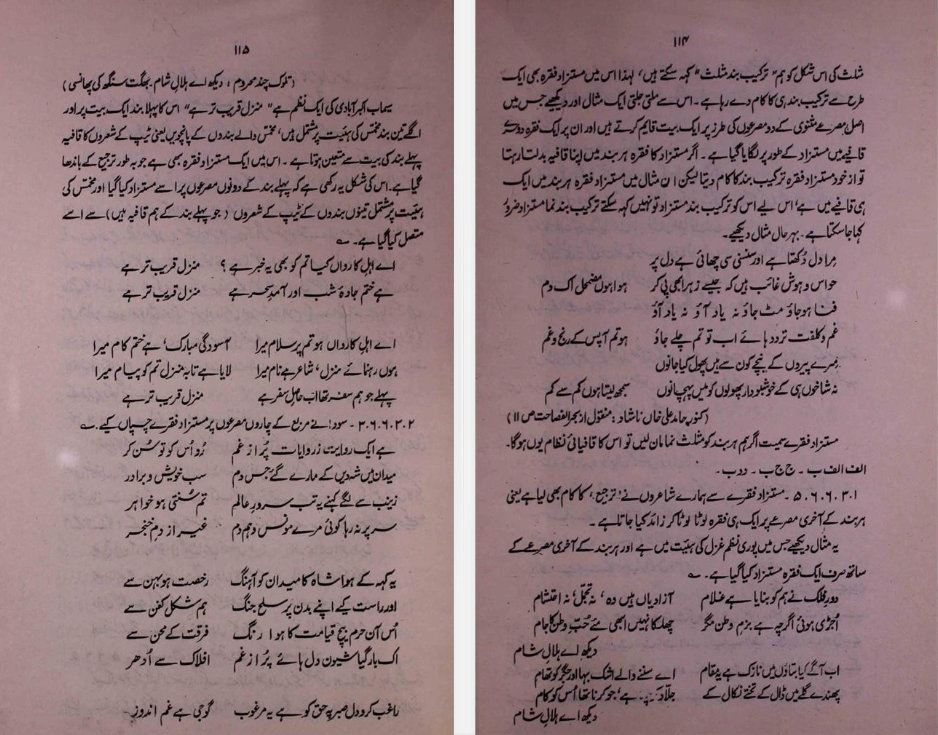 ۱۱۴
مثلث کی اس شکل کو ہم "ترکیب بند مثلث" کہہ سکتے ہیں، لہٰذا اس میں مستزاد فقرہ بھی ایک
طرح سے ترکیب بند ہی کا کام دے رہا ہے۔ اس سے ملتی جلتی ایک مثال اور دیکھیے جس میں
اصل مصرعے مثنوی کے دو مصرعوں کی طرز پر ایک بیت قایم کرتے ہیں اور ان پر ایک فقرہ دوسرے
قافیے میں مستزاد کے طور پر لگایا گیا ہے۔ اگر مستزاد کا فقرہ ہر بند میں اپنا قافیہ بدلتا رہتا
تو از خود مستزاد فقرہ ترکیب بند کا کام دیتا لیکن ان مثال میں مستزاد فقرہ ہر بند میں ایک
ہی قافیے میں ہے، اس لیے اس کو ترکیب بند مستزاد تو نہیں کہہ سکتے ترکیب بند نما مستزاد ضرور
کہا جا سکتا ہے۔ بہرحال مثال دیکھیے۔
مرا دل دکھتا ہے اور سنسنی سی چھائی ہے دل پر
حواس و ہوش غائب ہیں کہ جیسے زہر ابھی پی کر ہوا ہوں مضمحل اک دم
فنا ہو جاؤ مٹ جاؤ نہ یاد آؤ نہ یاد آؤ
غم و کلفت تردد ہائے اب تو تم چلے جاؤ ہو تم آپس کے رنج و غم
مرے پیروں کے نیچے کون سے ہیں پھول کیا جانوں
نہ شاخوں ہی کے خوشبودار پھولوں کو میں پہچانوں سمجھ لیتا ہوں کم سے کم
(کنور حامد علی خاں ناشاد : منقول از بحر الفصاحت ص ۱۱)
مستزاد فقرے سمیت اگر ہم ہر بند کو مثلث نما مان لیں تو اس کا قافیائی نظام یوں ہوگا۔
الف الف ب ۔ ج ج ب ۔ د د ب ۔
۵.۶.۶.۳.۱ ۔ مستزاد فقرے سے ہمارے شاعروں نے 'ترجیع' کا کام بھی لیا ہے یعنی
ہر بند کے آخری مصرعے پر ایک ہی فقرہ لوٹا لوٹا کر زائد کیا جاتا ہے۔
یہ مثال دیکھیے جس میں پوری نظم غزل کی ہیئت میں ہے اور ہر بند کے آخری مصرعے کے
ساتھ صرف ایک فقرہ مستزاد کیا گیا ہے۔
دورِ فلک نے ہم کو بنایا ہے غلام آزادیاں ہیں وہ، نہ تجمّل، نہ احتشام
اجڑی ہوئی اگرچہ ہے بزمِ وطن مگر چھلکا نہیں ابھی مئے حبِّ وطن کا جام
دیکھ اے ہلالِ شام
اب آگے کیا بتاؤں میں نازک ہے یہ مقام اے سننے والے اشک بہا اور جگر کو تھام
پھندے گلے میں ڈال کے تختے نکال کے جلاد ہے، جو کرنا تھا اس کو کام
دیکھ اے ہلالِ شام
۱۱۵
(تلوک چند محروم، دیکھ اے ہلالِ شام۔ بھگت سنگھ کی پھانسی)
سیماب اکبر آبادی کی ایک نظم ہے "منزل قریب تر ہے" اس کا پہلا بند ایک بیت پر اور
اگلے تین بند مخمس کی ہیئت پر مشتمل ہیں، مخمس والے بندوں کے پانچویں یعنی ٹیپ کے شعروں کا قافیہ
پہلے بند کی بیت سے متعین ہوتا ہے۔ اس میں ایک مستزاد فقرہ بھی ہے جو بہ طور ترجیع کے باندھا
گیا ہے۔ اس کی شکل یہ رکھی ہے کہ پہلے بند کے دونوں مصرعوں پر اسے مستزاد کیا گیا اور مخمس کی
ہیئت پر مشتمل تینوں بندوں کے ٹیپ کے شعروں (جو پہلے بند کے ہم قافیہ ہیں) سے اسے
متصل کیا گیا ہے۔
اے اہلِ کارواں کیا تم کو بھی یہ خبر ہے؟ منزل قریب تر ہے
ہے ختم جادۂ شب اور آمدِ سحر ہے منزل قریب تر ہے
اے اہلِ کارواں ہو تم پر سلام میرا آسودگی مبارک، ہے ختم کام میرا
ہوں رہنمائے منزل، شاعر ہے نام میرا لایا ہے تا بہ منزل تم کو پیام میرا
پہلے جو ہم سفر تھا اب حاصلِ سفر ہے منزل قریب تر ہے
۳.۶.۶.۳.۲ ۔ سودا نے مربع کے چاروں مصرعوں پر مستزاد فقرے چسپاں کیے۔
ہے ایک روایت ز روایات پُر از غم رو اس کو تو سُن کر
میدان میں شہ دیں کے مارے گئے جس دم سب خویش و برادر
زینب سے لگے کہنے یہ تب سرورِ عالم تم سُنتی ہو خواہر
سر پر نہ رہا کوئی مرے مونس و ہم دم غیر از دمِ خنجر
یہ کہہ کے ہوا شاہ کا میدان کو آہنگ رخصت ہو بہن سے
اور راست کیے اپنے بدن پر سلحِ جنگ ہم شکل کفن سے
اُس آن حرم بیچ قیامت کا ہوا رنگ فرقت کے محن سے
اک بار گیا شیونِ دل ہائے پُر از غم افلاک سے اُدھر
راغب کرو دل صبر پہ حق کو ہے یہ مرغوب گو جی ہے غم اندوز۔